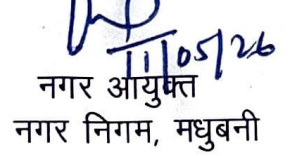 11/05/26
नगर आयुक्त
नगर निगम, मधुबनी